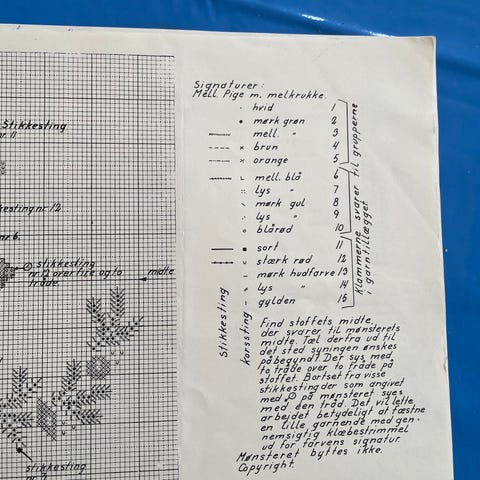 Stikkesting
nr. 11
nr. 12
nr 6.
stikkesting
nr. 12 over fire og to
tråde.
midte
stikkesting
Signaturer:
Mell. Pige m. melkrukke.
hvid 1
mørk grøn 2
mell. " 3
brun 4
orange 5
mell. blå 6
lys " 7
mørk gul 8
lys " 9
blårød 10
sort 11
stærk rød 12
mørk hudfarve 13
lys " 14
gylden 15
Stikkesting
korssting
Klammerne svarer til grupperne
i garntillægget.
Find stoffets midte,
der svarer til mønsterets
midte. Tæl dertra ud til
det sted syningen ønskes
påbegyndt. Der sys med
to tråde over to tråde på
stoffet. Bortset fra visse
stikkesting der som angivet
med på mønsteret syes
med èn tråd. Det vil lette
arbejdet betydeligt at fæstne
en lille garnende med gen-
nemsigtig klæbestrimmel
ud for farvens signatur.
Mønsteret byttes ikke.
Copyright.